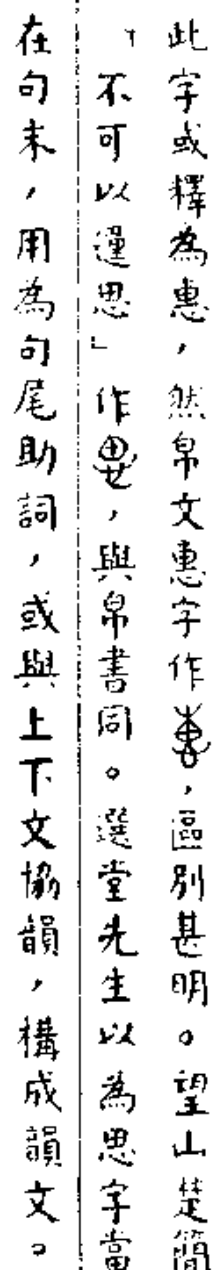 此字或釋為惠，然帛文惠字作，區別甚明。望山楚簡
「不可以運思」作，與帛書同。選堂先生以為思字當
在句末，用為句尾助詞，或與上下文協韻，構成韻文。